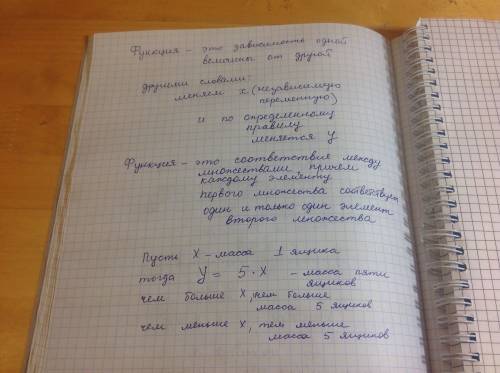 Функция – это зависимость одной
величины от другой
другими словами:
меняем x (независимую
переменную)
и по определенному
правилу
меняется y
Функция – это соответствие между
множествами причем
каждому элементу
первого множества соответствует
один и только один элемент
второго множества
Пусть X – масса 1 ящика
тогда Y = 5 · X – масса пяти
ящиков
чем больше X, тем больше
масса 5 ящиков
чем меньше X, тем меньше
масса 5 ящиков